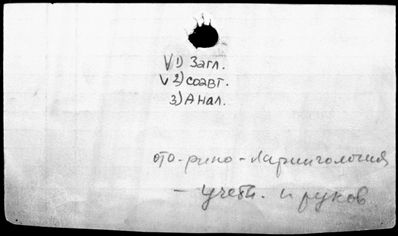 V 1) Загл.
V 2) соавт.
3) Анал.
ото-рино-ларингология
- учебн. и руков